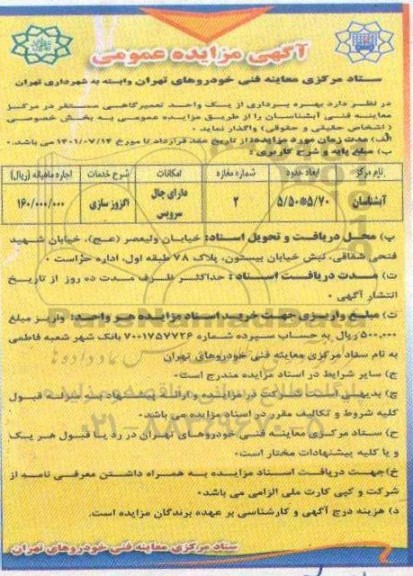 آگهی مزایده عمومی
ستاد مرکزی معاینه فنی خودروهای تهران وابسته به شهرداری تهران
در نظر دارد بهره برداری از یک واحد تعمیرگاهی مستقر در مرکز
معاینه فنی آبشناسان را از طریق مزایده عمومی به بخش خصوصی
(اشخاص حقیقی و حقوقی) واگذار نماید.
الف) مدت زمان مورد مزایده: از تاریخ عقد قرارداد تا مورخ ۱۴۰۱/۰۷/۱۴ می باشد.
ب) مبلغ پایه و شرح کاربری:
نام مرکز ابعاد حدود شماره مغازه امکانات شرح خدمات اجاره ماهیانه (ریال)
آبشناسان ۵/۵۰*۵/۷۰ ۲ دارای چال سرویس اگزوز سازی ۱۶۰/۰۰۰/۰۰۰
پ) محل دریافت و تحویل اسناد: خیابان ولیعصر (عج)، خیابان شهید
فتحی شقاقی، نبش خیابان بیستون، پلاک ۷۸ طبقه اول، اداره حراست.
ت) مدت دریافت اسناد: حداکثر ظرف مدت ده روز از تاریخ
انتشار آگهی.
ث) مبلغ واریزی جهت خرید اسناد مزایده هر واحد: واریز مبلغ
۵۰۰,۰۰۰ ریال به حساب سپرده شماره ۷۰۰۱۷۵۷۷۲۶ بانک شهر شعبه فاطمی
به نام ستاد مرکزی معاینه فنی خودروهای تهران
ج) سایر شرایط در اسناد مزایده مندرج است.
چ) بدیهی است شرکت در مزایده و ارائه پیشنهاد به منزله قبول
کلیه شروط و تکالیف مقرر در اسناد مزایده می باشد.
ح) ستاد مرکزی معاینه فنی خودروهای تهران در رد یا قبول هر یک
و یا کلیه پیشنهادات مختار است.
خ) جهت دریافت اسناد مزایده به همراه داشتن معرفی نامه از
شرکت و کپی کارت ملی الزامی می باشد.
د) هزینه درج آگهی و کارشناسی بر عهده برندگان مزایده است.
ستاد مرکزی معاینه فنی خودروهای تهران
ParsNamadData
۰۲۱-۸۸۳۴۹۶۷۰-۵